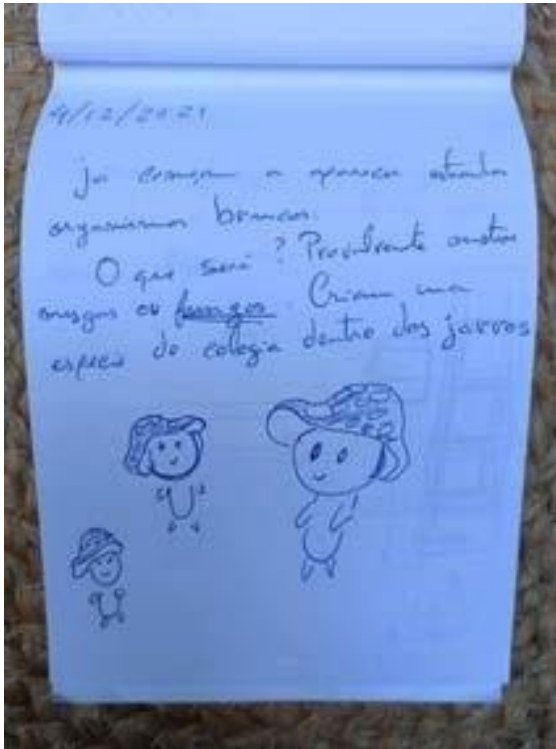 4/12/2021
Já começam a aparecer
organismos brancos.
O que será? Provavelmente
musgos ou fungos. Criam uma
espécie de colégio dentro dos jarros